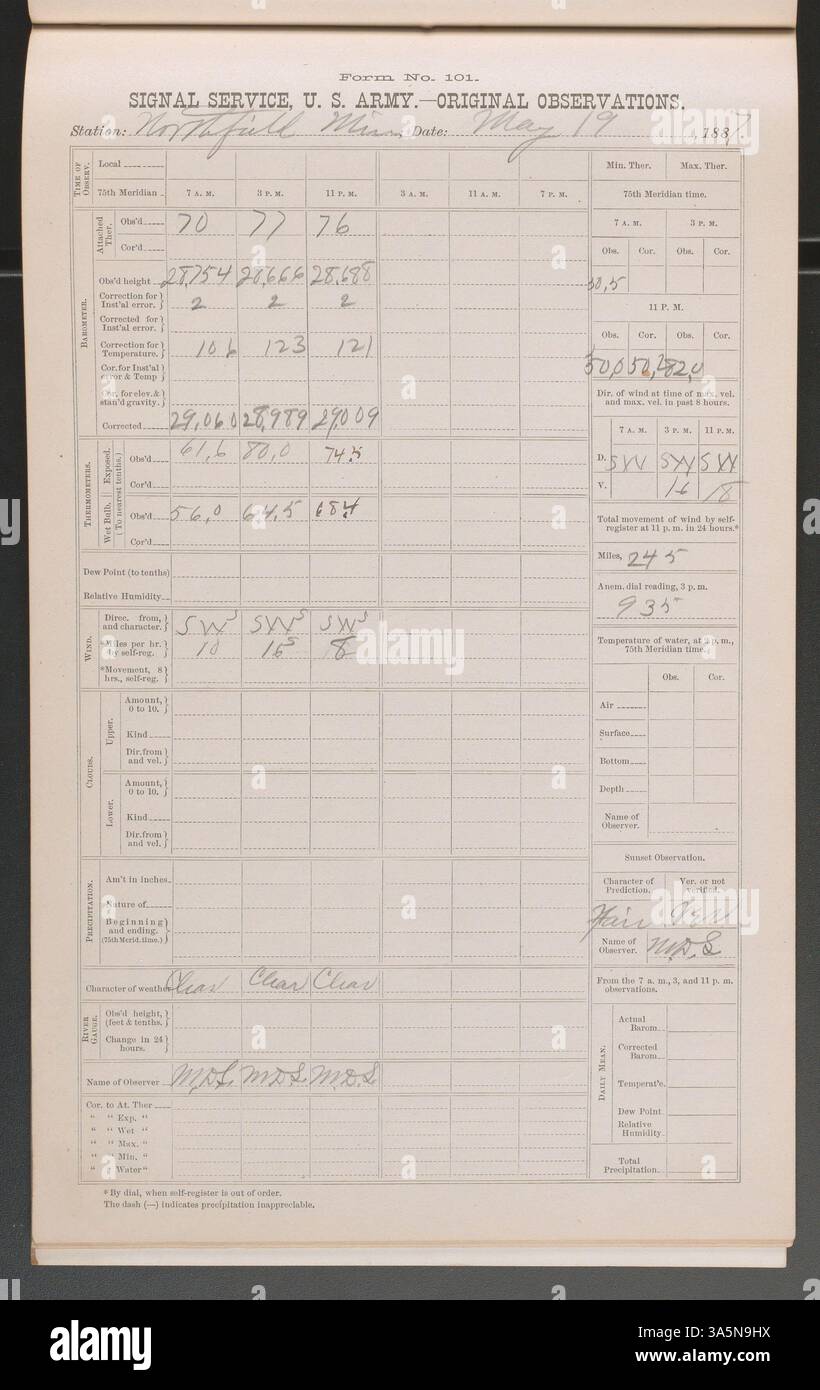 Form No. 101.
SIGNAL SERVICE, U. S. ARMY.—ORIGINAL OBSERVATIONS.
Station: Northfield Minn. Date: May 19, 1887.
TIME OF OBSERV.
Local
75th Meridian 7 A. M. 3 P. M. 11 P. M. 3 A. M. 11 A. M. 7 P. M.
BAROMETER.
Attached Ther.
Obs'd 70 77 76
Cor'd
Obs'd height 28,754 28,666 28,688
Correction for Inst'al error. 2 2 2
Corrected for Inst'al error.
Correction for Temperature. 106 123 121
Cor. for Inst'al error & Temp
Cor. for elev. & stan'd gravity.
Corrected 29,060 28,989 29,009
THERMOMETERS.
(To nearest tenths.)
Exposed.
Obs'd 61,6 80,0 74.5
Cor'd
Wet Bulb.
Obs'd 56,0 64,5 68.4
Cor'd
Dew Point (to tenths)
Relative Humidity
WIND.
Direc. from, and character. SW S SW S SW S
*Miles per hr. by self-reg. 10 16 8
*Movement, 8 hrs., self-reg.
CLOUDS.
Upper.
Amount, 0 to 10.
Kind
Dir. from and vel.
Lower.
Amount, 0 to 10.
Kind
Dir. from and vel.
PRECIPITATION.
Am't in inches
Nature of
Beginning and ending. (75th Merid. time.)
Character of weather Clear Clear Clear
RIVER GAUGE.
Obs'd height, (feet & tenths.)
Change in 24 hours.
Name of Observer M.D.S. M.D.S. M.D.S.
Cor. to At. Ther
“ “ Exp. “
“ “ Wet “
“ “ Max. “
“ “ Min. “
“ “ Water “
* By dial, when self-register is out of order.
The dash (—) indicates precipitation inappreciable.
Min. Ther. Max. Ther.
75th Meridian time.
7 A. M. 3 P. M.
Obs. Cor. Obs. Cor.
50,5
11 P. M.
Obs. Cor. Obs. Cor.
50,0 50,2 82,0
Dir. of wind at time of max. vel. and max. vel. in past 8 hours.
7 A. M. 3 P. M. 11 P. M.
D. SW SW SW
V. 16 18
Total movement of wind by self-register at 11 p. m. in 24 hours.*
Miles, 245
Anem. dial reading, 3 p. m.
935
Temperature of water, at 2 p. m., 75th Meridian time.
Obs. Cor.
Air
Surface
Bottom
Depth
Name of Observer.
Sunset Observation.
Character of Prediction. Ver. or not verified.
Fair
Name of Observer. M.D.S.
From the 7 a. m., 3, and 11 p. m. observations.
DAILY MEAN.
Actual Barom.
Corrected Barom.
Temperat'e.
Dew Point
Relative Humidity
Total Precipitation.
alamy
alamy
Image ID: 3A5N9HX
www.alamy.com